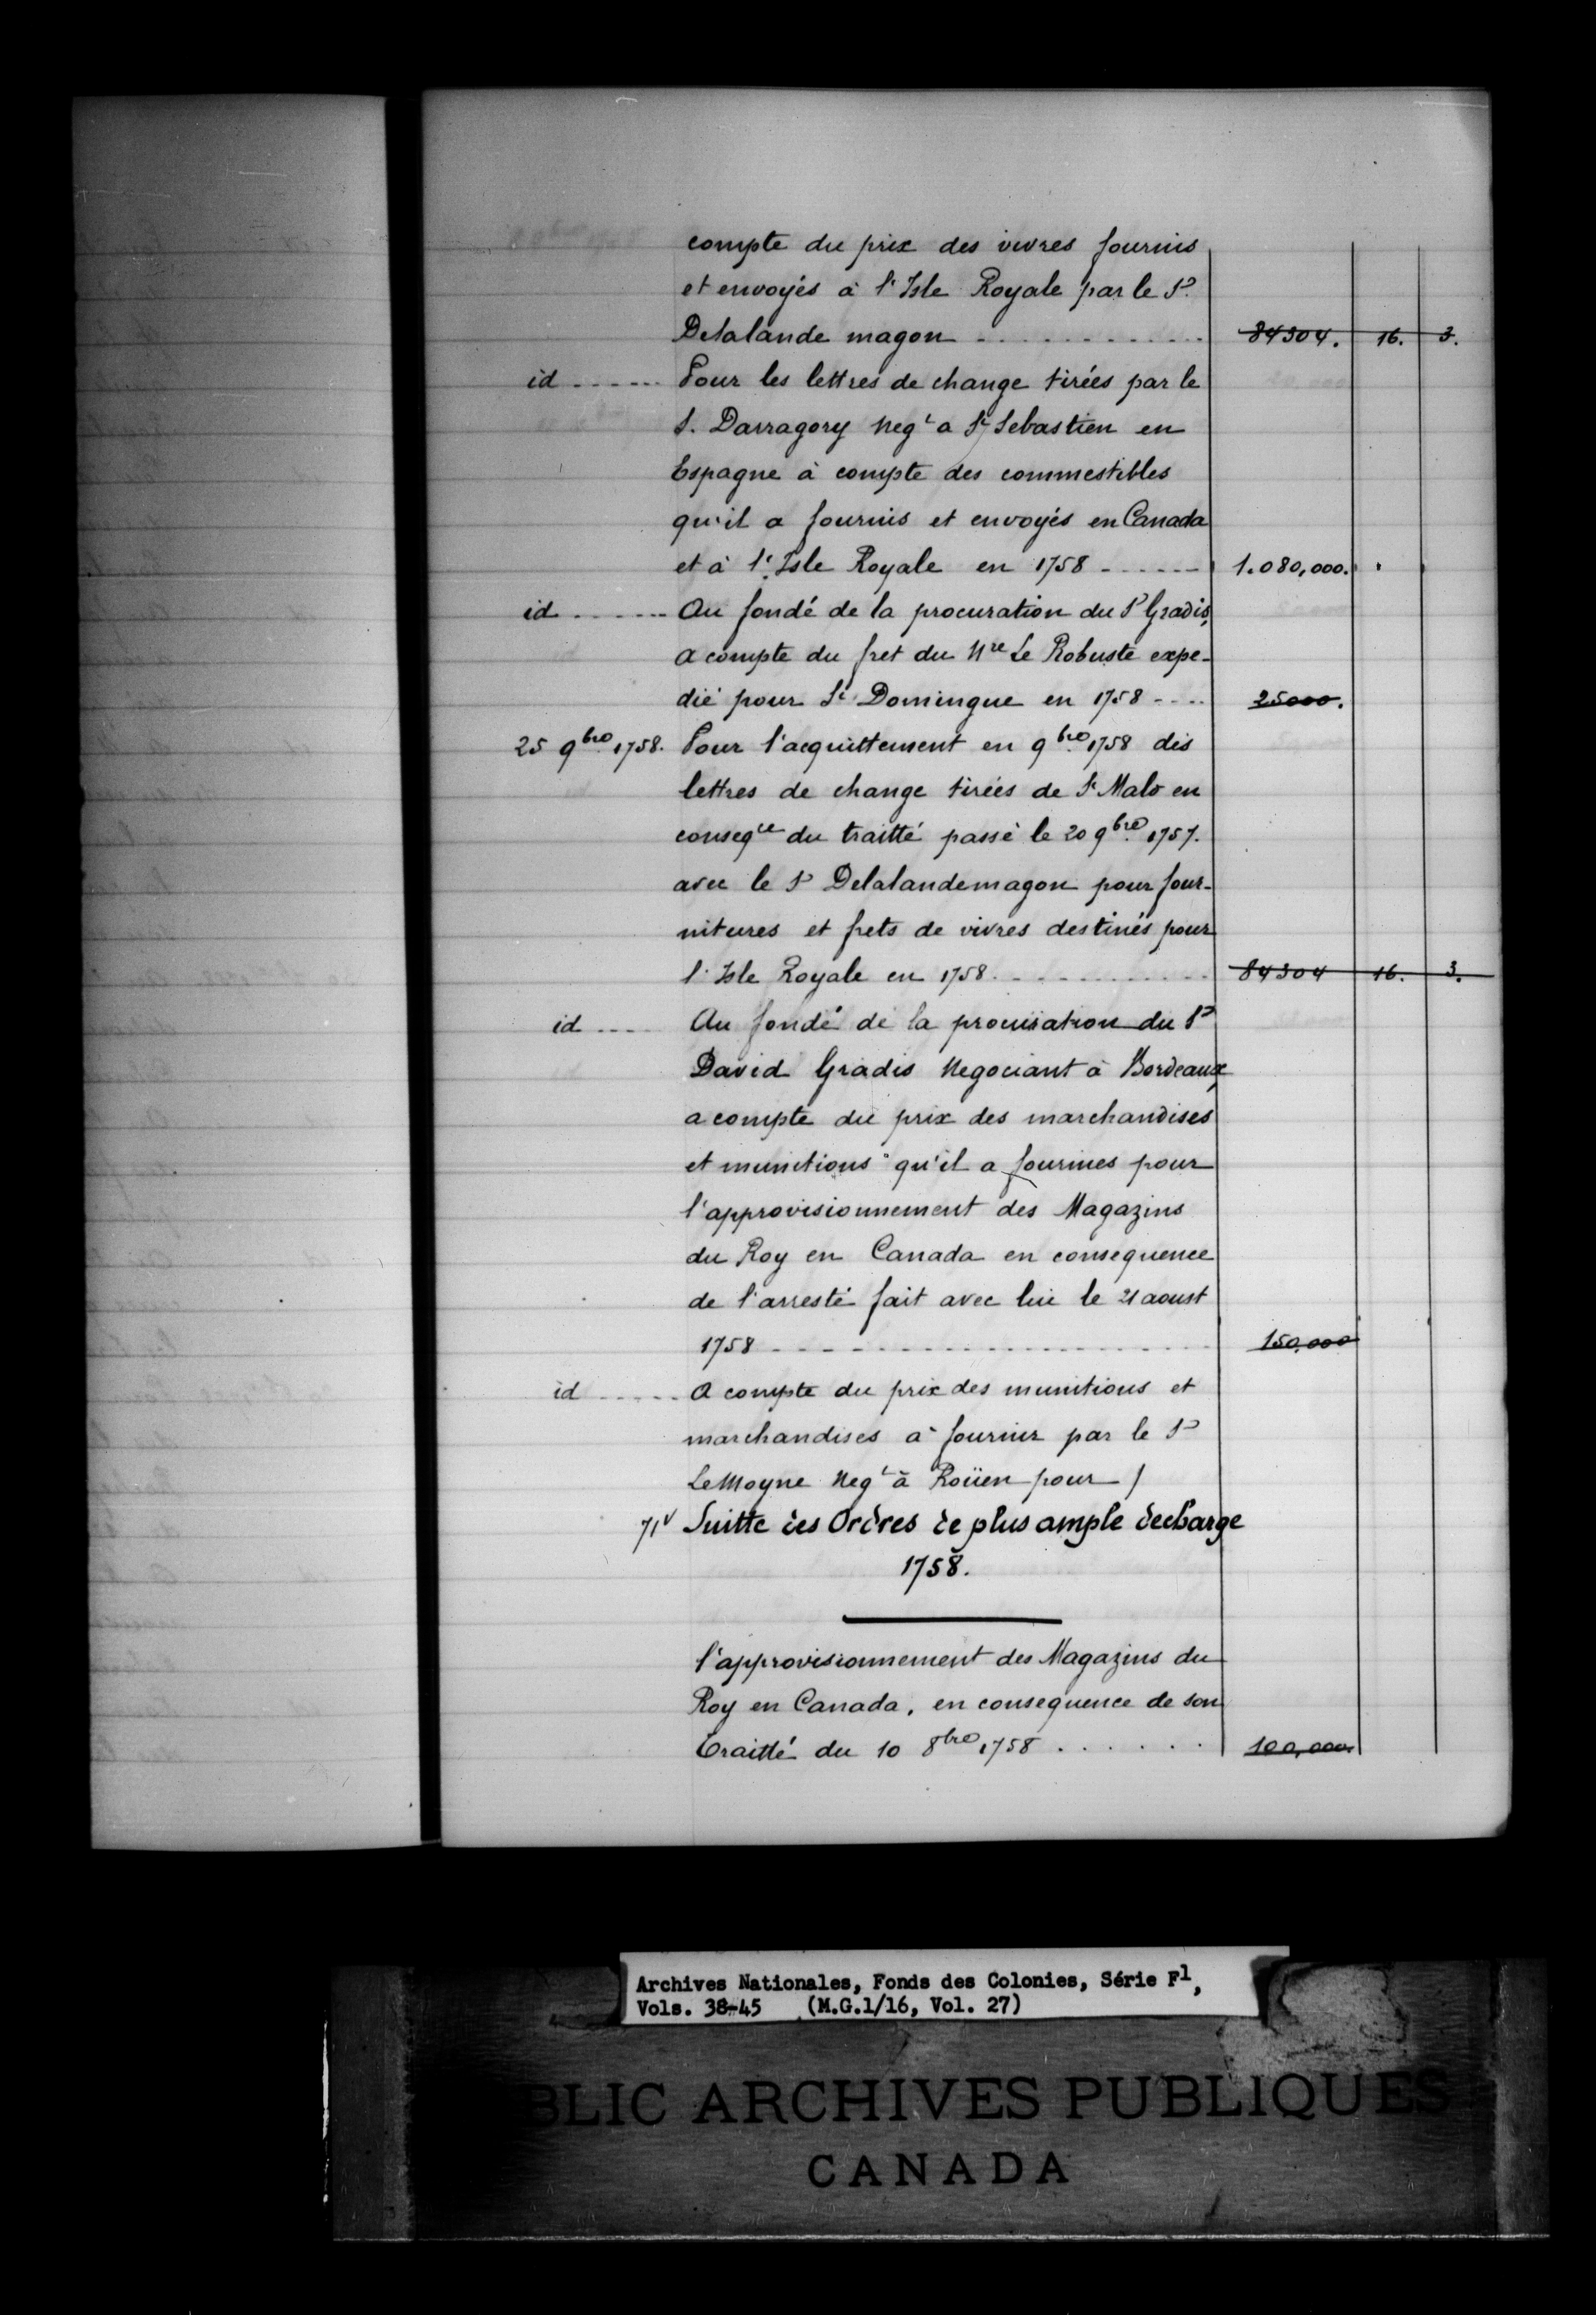 compte du prix des vivres fournis
et envoyés à l'Isle Royale par le Sr
Delalande magon - - - - - - - - - - - 84304. 16. 3.
id ------ Pour les lettres de change tirées par le
S. Darragory Negt a St Sebastien en
Espagne à compte des commestibles
qu'il a fournis et envoyés en Canada
et à l'Isle Royale en 1758 ------ 1.080,000.
id ------ Au fondé de la procuration du Sr Gradis,
a compte du fret du Nre Le Robuste expe-
dié pour St Domingue en 1758 ---- 25000.
25 9bre 1758. Pour l'acquittement en 9bre 1758 des
lettres de change tirées de St Malo en
conseqce du traitté passé le 20 9bre 1757.
avec le Sr Delalandemagon pour four-
nitures et frets de vivres destinés pour
l'Isle Royale en 1758. - - - - - - - - - - 84304 16. 3.
id ---- Au fondé de la procuration du Sr
David Gradis Negociant à Bordeaux,
a compte du prix des marchandises
et munitions qu'il a fournies pour
l'approvisionnement des Magazins
du Roy en Canada en consequence
de l'arresté fait avec lui le 21 aoust
1758 - - - - - - - - - - - - - - - - - - 150,000
id ----- A compte du prix des munitions et
marchandises à fournir par le Sr
LeMoyne Negt à Roüen pour /
71v Suitte des Ordres de plus ample decharge
1758.
l'approvisionnement des Magazins du
Roy en Canada, en consequence de son
Traitté du 10 8bre 1758 . . . . . . 100,000.
Archives Nationales, Fonds des Colonies, Série F1,
Vols. 38-45 (M.G.1/16, Vol. 27)
BLIC ARCHIVES PUBLIQUES
CANADA